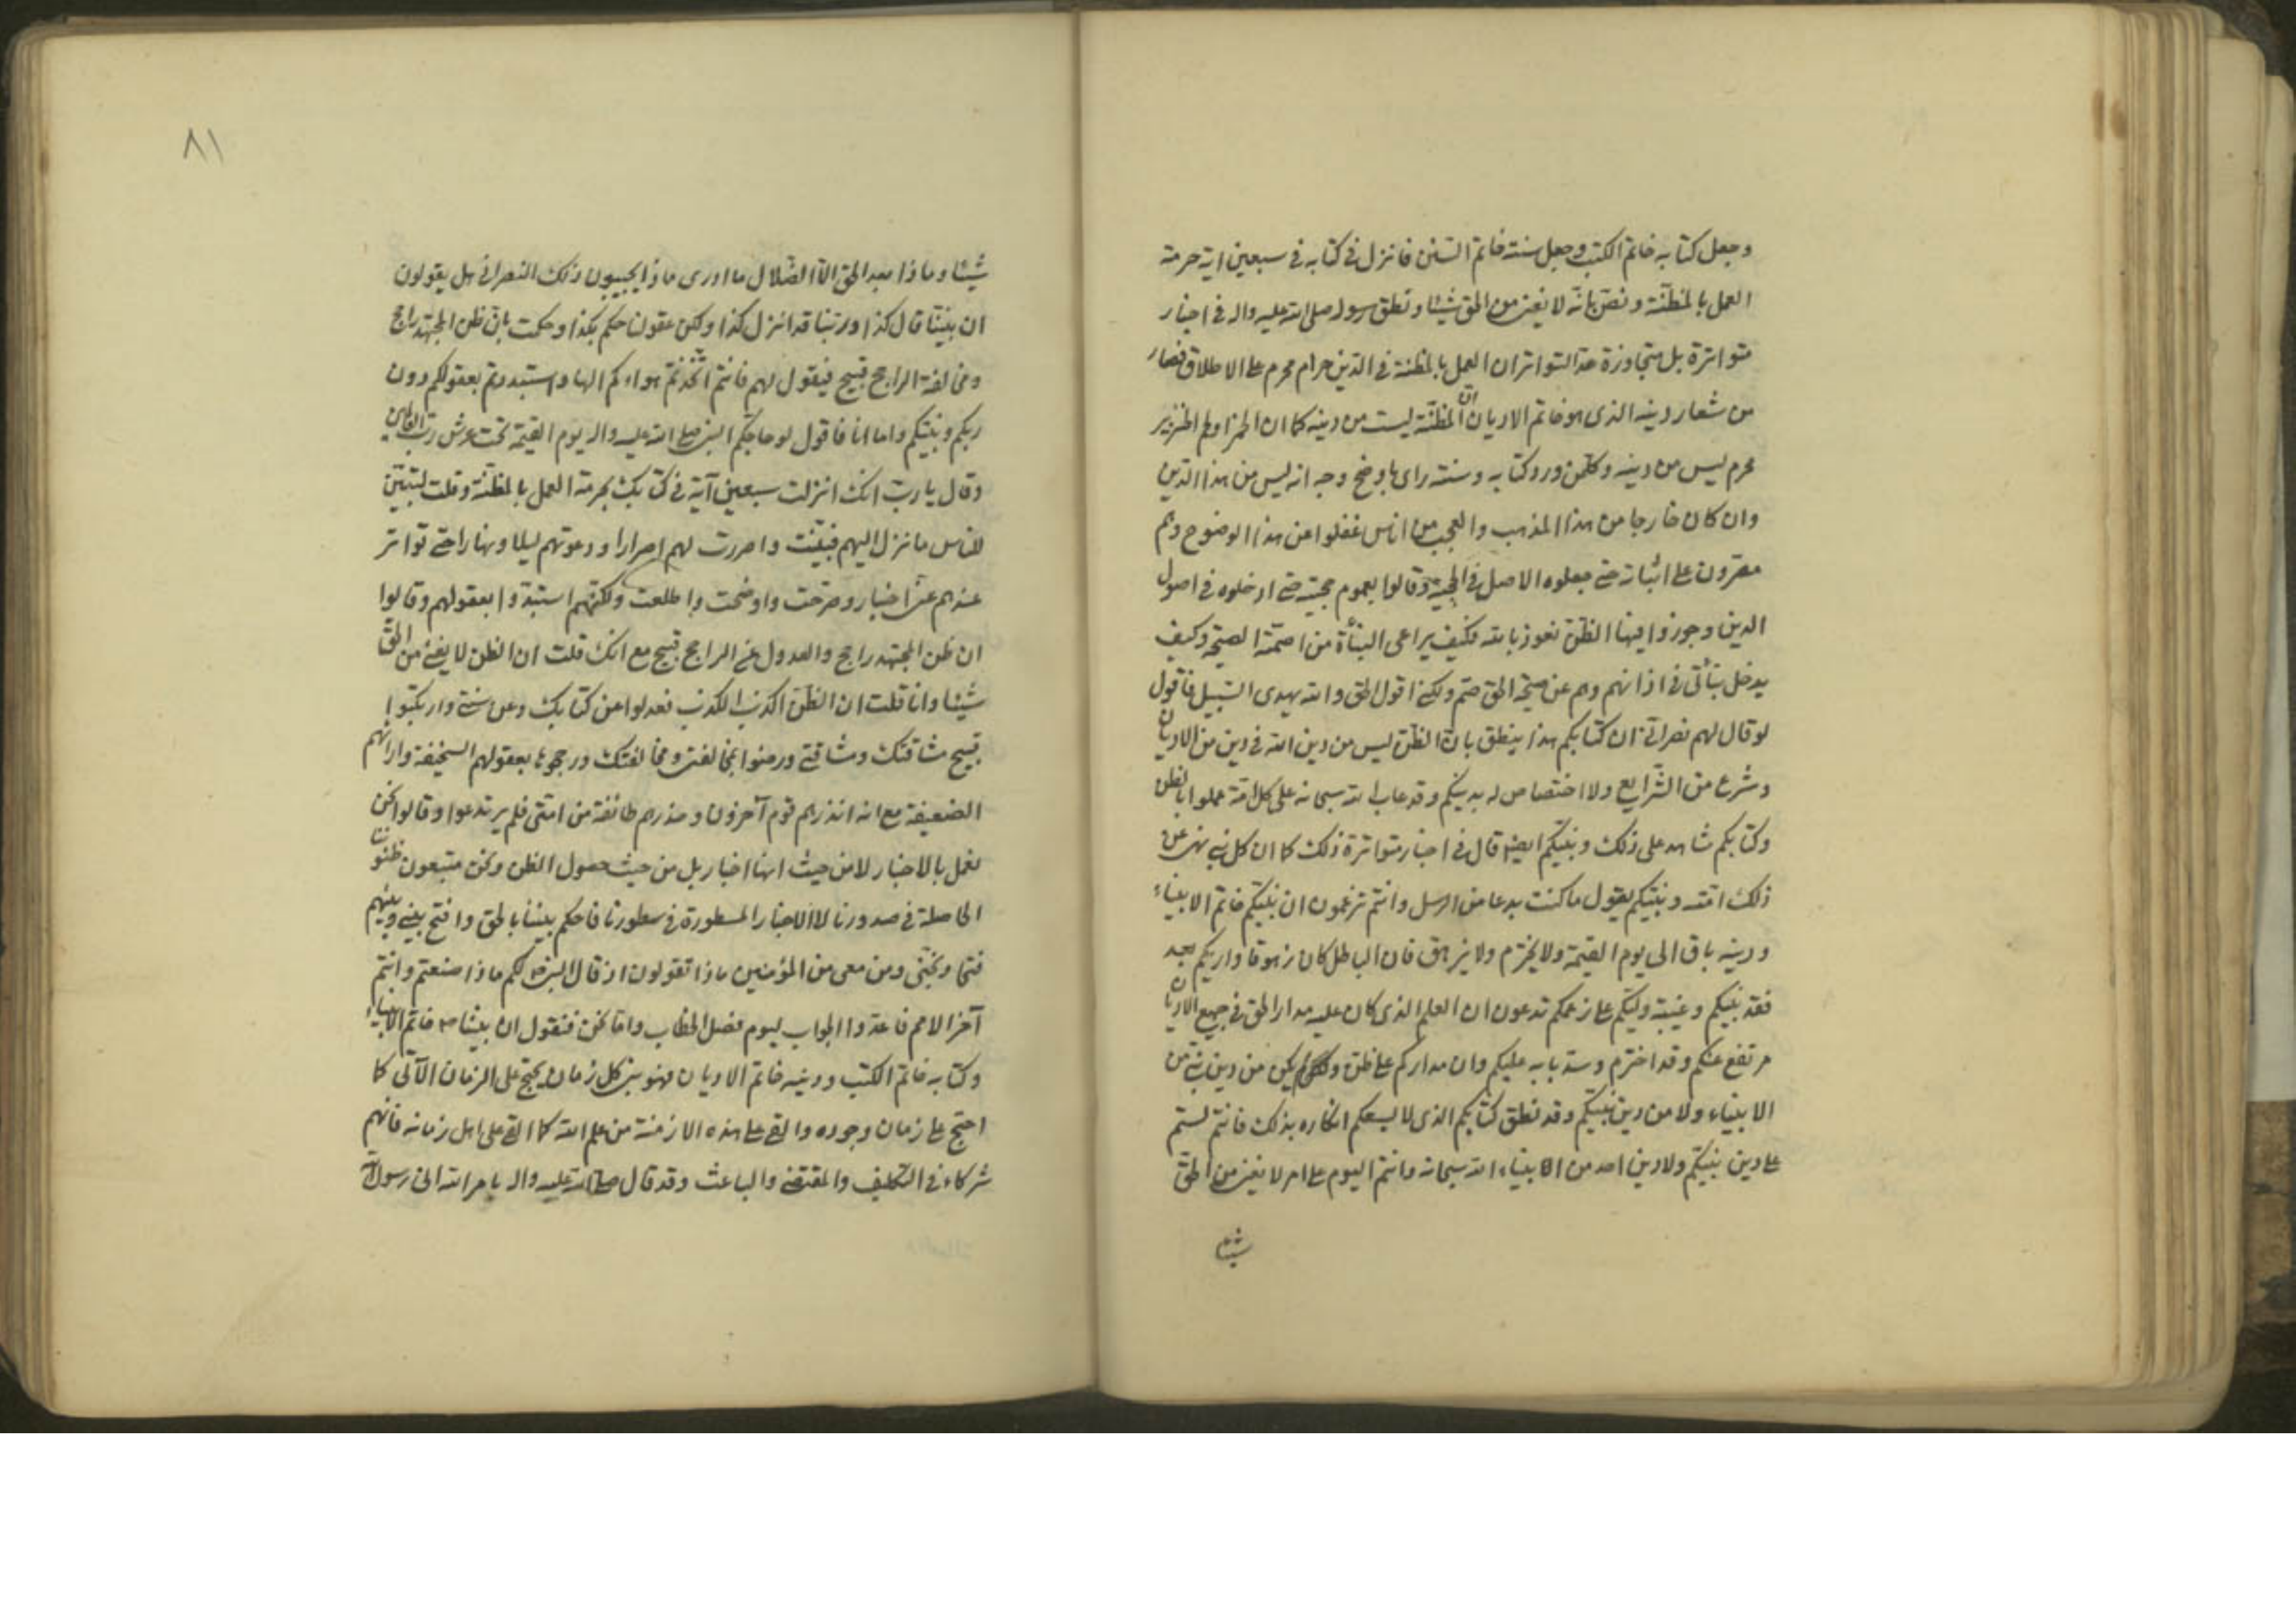 وجعل كتابه خاتم الكتب وجعل سنته خاتم السنن فانزل في كتابه في سبعين اية حرمة
العمل بالمظنّة ونصّ بانّه لا يغني من الحق شيئا ونطق رسوله صلى الله عليه واله في اخبار
متواترة بل متجاوزة حد التواتر ان العمل بالمظنة في الدين حرام محرم على الاطلاق فصار
من شعار دينه الذى هو خاتم الاديان ان المظنّة ليست من دينه كما ان الخمر ولحم الخنزير
محرم ليس من دينه وكلمن ورد كتابه وسنته راى باوضح وجه انه ليس من هذا الدين
وان كان خارجا من هذا المذهب والعجب من اناس غفلوا عن هذا الوضوح وهم
مصرون على اثباته حتى جعلوه الاصل في الحجية وقالوا بعموم حجيته حتى ادخلوه في اصول
الدين وجوزوا فيها الظنّ نعوذ بالله فكيف يراعى النبأة من اصمّته الصيحة وكيف
يدخل نبأتى في اذانهم وهم عن صيحة الحق صم ولكنى اقول الحق والله يهدى السّبيل فاقول
لو قال لهم نصرانى ان كتابكم هذا ينطق بان الظنّ ليس من دين الله في دين من الاديان
وشرع من الشّرايع ولا اختصاص له بدينكم وقد عاب الله سبحانه على كل امة عملوا بالظن
وكتابكم شاهد على ذلك ونبيّكم ايضا قال في اخبار متواترة ذلك كما ان كل نبى نهى عن
ذلك امّته ونبيّكم يقول ما كنت بدعا من الرسل وانتم تزعمون ان نبيّكم خاتم الانبياء
ودينه باق الى يوم القيمة ولا يخترم ولا يزهق فان الباطل كان زهوقا واريكم بعد
فقد نبيكم وغيبة وليّكم على زعمكم تدعون ان العلم الذى كان عليه مدار الحق في جميع الاديان
مرتفع عنكم وقد اخترم وسدّ بابه عليكم وان مداركم على ظن ولم يكن من دين نبى من
الانبياء ولا من دين نبيّكم وقد نطق كتابكم الذى لا يسعكم انكاره بذلك فانتم لستم
على دين نبيّكم ولا دين احد من انبياء الله سبحانه وانتم اليوم على امر لا يغنى من الحق
شيئا
٨١
شيئا وماذا بعد الحق الا الضّلال ما ادرى ماذا يجيبون ذلك النصرانى هل يقولون
ان نبيّنا قال كذا وربّنا قد انزل كذا ولكن عقولنا حكم بكذا وحكمت بان ظن المجتهد راجح
ومخالفة الراجح قبيح فيقول لهم فانتم اتخذتم هواءكم الها واستبددتم بعقولكم دون
ربكم ونبيّكم واما انا فاقول لو حاجكم النبى صلى الله عليه واله يوم القيمة تحت عرش رب العالمين
وقال يا ربّ انك انزلت سبعين آية في كتابك بحرمة العمل بالمظنّة وقلت لتبيّن
للناس ما نزل اليهم فبيّنت واصررت لهم اصرارا ودعوتهم ليلا ونهارا حتى تواتر
عندهم عنّى اخبار وصرّحت واوضحت واطلعت ولكنّهم استبدّوا بعقولهم وقالوا
ان ظن المجتهد راجح والعدول عن الراجح قبيح مع انك قلت ان الظن لا يغنى من الحقّ
شيئا وانا قلت ان الظنّ اكذب الكذب فعدلوا عن كتابك وعن سنتى وارتكبوا
قبيح مشاقتك ومشاقتى ورضوا بمخالفتى ومخالفتك ورجحوها بعقولهم السخيفة وارائهم
الضعيفة مع انه انذرهم قوم آخرون وحذرهم طائفة من امتى فلم يرتدعوا وقالوا نحن
نعمل بالاخبار لا من حيث انها اخبار بل من حيث حصول الظن ونحن متبعون ظنوننا
الحاصلة في صدورنا لا الاخبار المسطورة في سطورنا فاحكم بيننا بالحق وافتح بينى وبينهم
فتحا ونجّنى ومن معى من المؤمنين ماذا تقولون اذ قال النبى ص لكم ماذا صنعتم وانتم
آخر الامم فاعدوا الجواب ليوم فصل الخطاب واما نحن فنقول ان نبيّنا ص خاتم الانبياء
وكتابه خاتم الكتب ودينه خاتم الاديان فهو نبى كل زمان يحتج على الزمان الآتى كما
احتج على زمان وجوده والقى على هذه الازمنة من علم الله كما القى على اهل زمانه فانهم
شركاء في التكليف والمقتضى والباعث وقد قال صلى الله عليه واله يا مر الله انى رسول الله